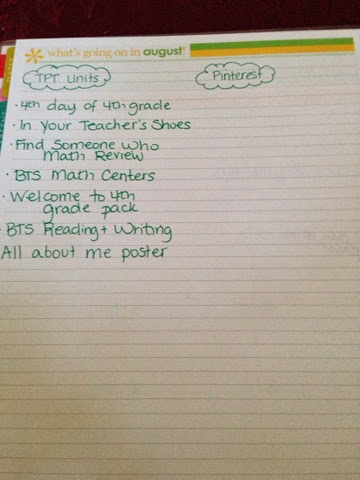 what's going on in august!
TPT Units
Pinterest
· 4th day of 4th grade
· In Your Teacher's Shoes
· Find Someone Who
Math Review
· BTS Math Centers
· Welcome to 4th
grade pack
· BTS Reading + Writing
All about me poster